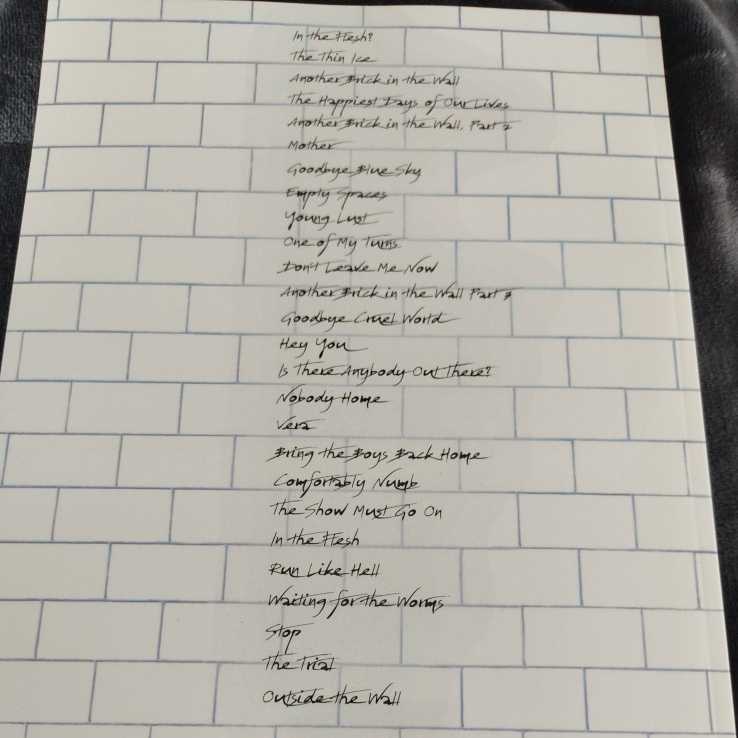 In the Flesh?
The Thin Ice
Another Brick in the Wall
The Happiest Days of Our Lives
Another Brick in the Wall, Part 2
Mother
Goodbye Blue Sky
Empty Spaces
Young Lust
One of My Turns
Don't Leave Me Now
Another Brick in the Wall Part 3
Goodbye Cruel World
Hey You
Is There Anybody Out There?
Nobody Home
Vera
Bring the Boys Back Home
Comfortably Numb
The Show Must Go On
In the Flesh
Run Like Hell
Waiting for the Worms
Stop
The Trial
Outside the Wall